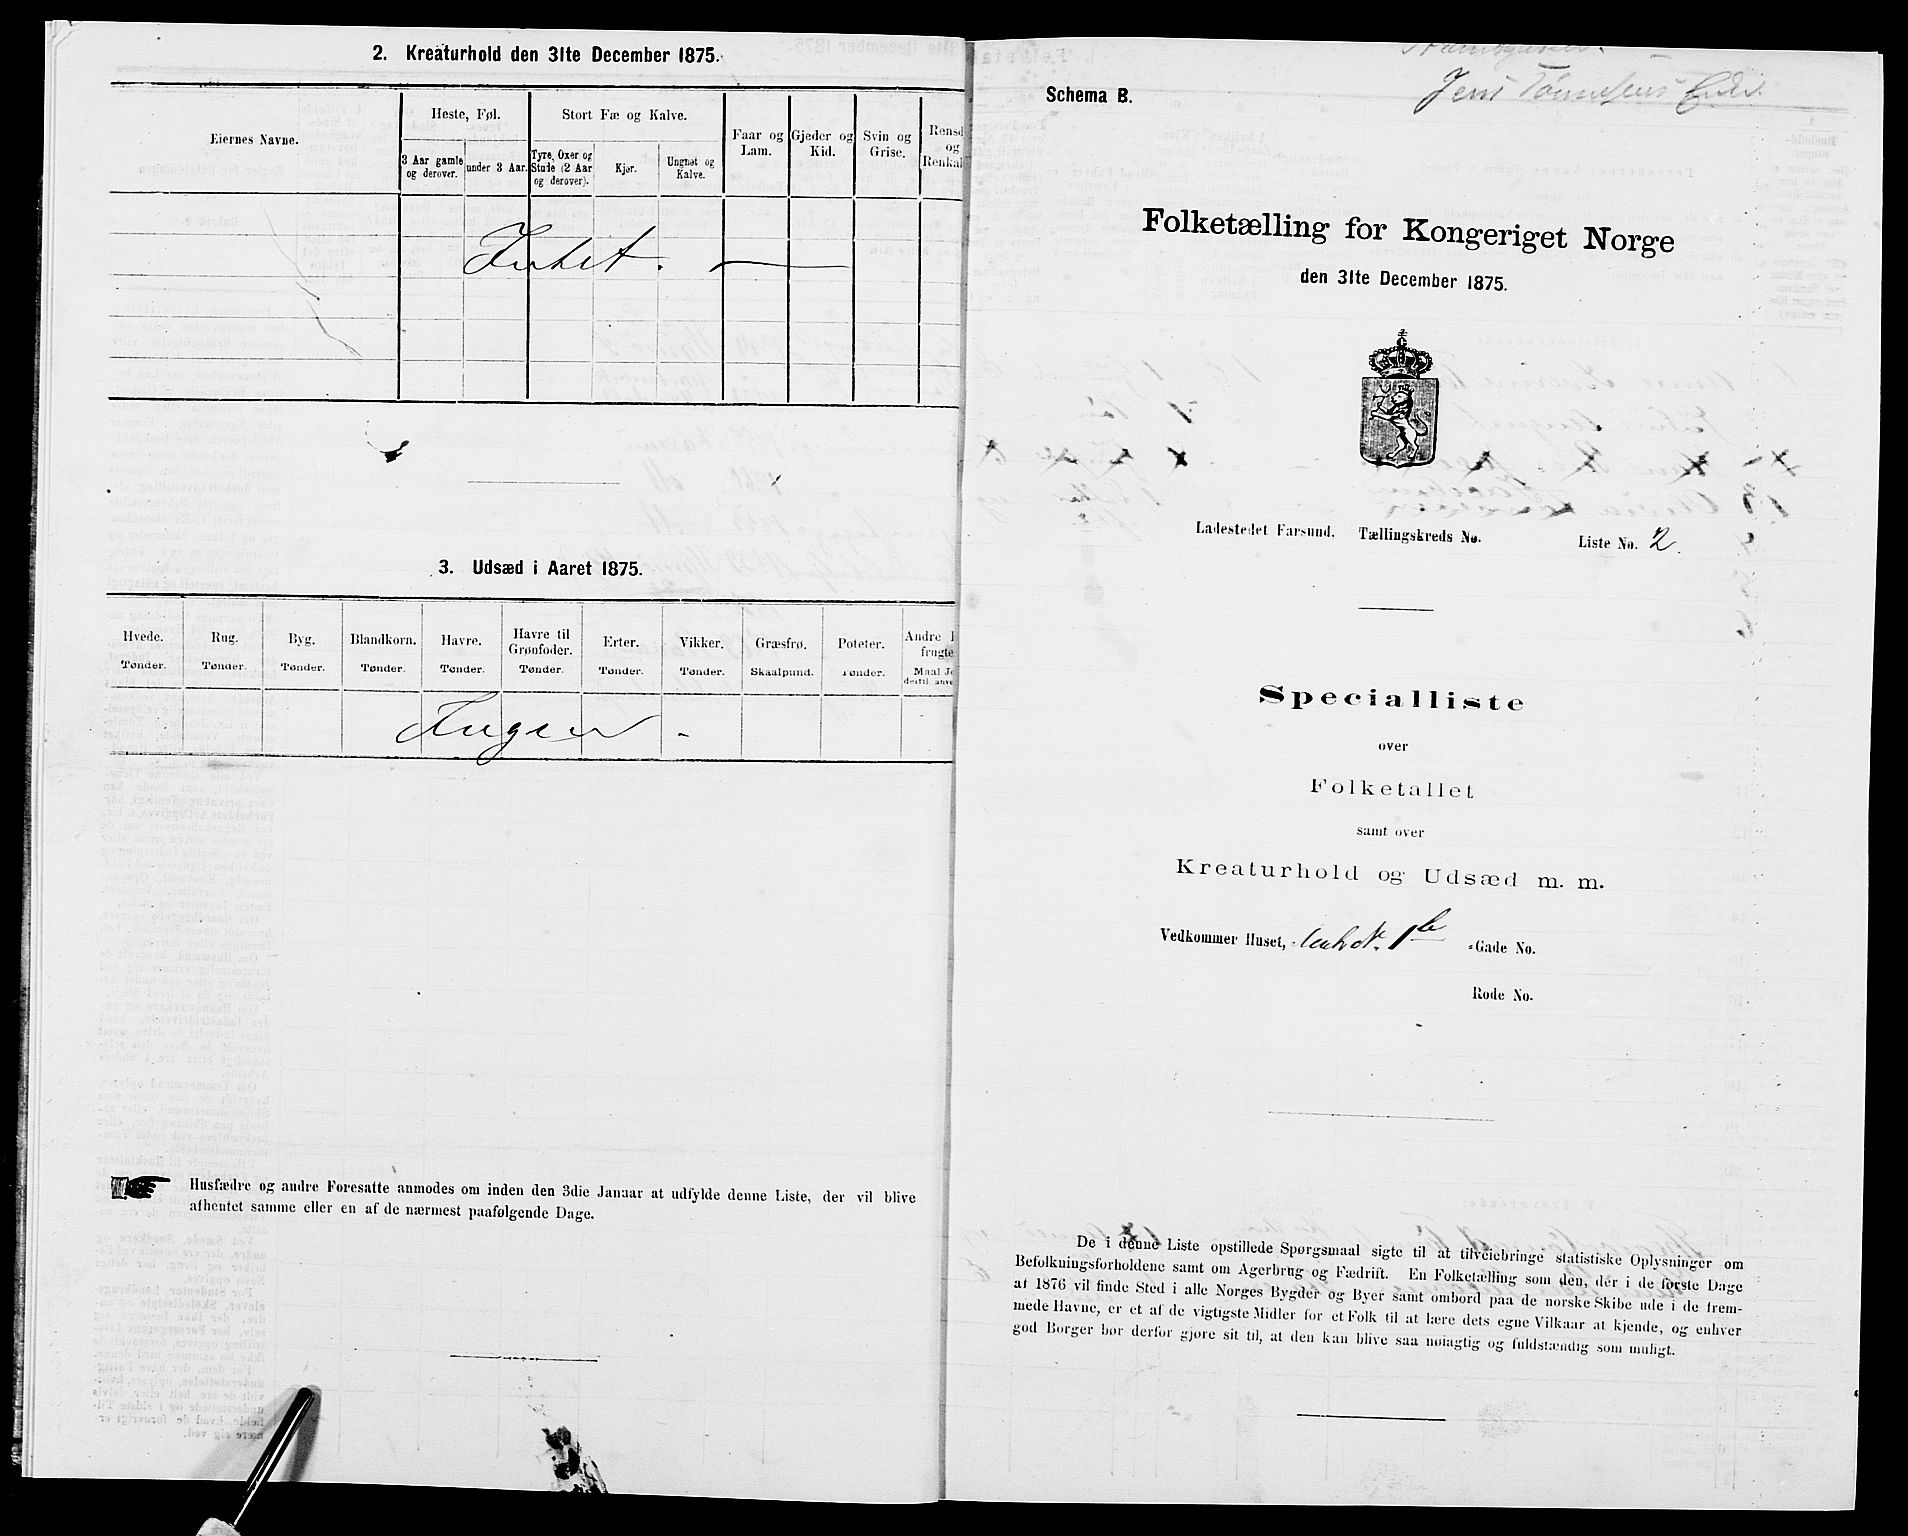 2. Kreaturhold den 31te December 1875.
Eiernes Navne.
Heste, Føl.
Stort Fæ og Kalve.
Faar og Lam.
Gjeder og Kid.
Svin og Grise.
Rensd
og
Renkal
3 Aar gamle og derover.
under 3 Aar.
Tyre, Oxer og Stude (2 Aar og derover).
Kjør.
Ungnøt og Kalve.
Intet.
3. Udsæd i Aaret 1875.
Hvede. Rug. Byg. Blandkorn. Havre. Havre til Grønfoder. Erter. Vikker. Græsfrø. Poteter. Andre
frugte
Tønder. Tønder. Tønder. Tønder. Tønder. Tønder. Tønder. Tønder. Skaalpund. Tønder. Maal
Ingen
Husfædre og andre Foresatte anmodes om inden den 3die Januar at udfylde denne Liste, der vil blive
afhentet samme eller en af de nærmest paafølgende Dage.
Schema B.
Jens Tønnesens
Folketælling for Kongeriget Norge
den 31te December 1875.
Ladestedet Farsund. Tællingskreds No. Liste No. 2.
Specialliste
over
Folketallet
samt over
Kreaturhold og Udsæd m. m.
Vedkommer Huset, Matr. 1b -Gade No.
Rode No.
De i denne Liste opstillede Spørgsmaal sigte til at tilveiebringe statistiske Oplysninger om
Befolkningsforholdene samt om Agerbrug og Fædrift. En Folketælling som den, der i de første Dage
af 1876 vil finde Sted i alle Norges Bygder og Byer samt ombord paa de norske Skibe ude i de frem-
mede Havne, er et af de vigtigste Midler for et Folk til at lære dets egne Vilkaar at kjende, og enhver
god Borger bør derfor gjøre sit til, at den kan blive saa nøiagtig og fuldstændig som muligt.